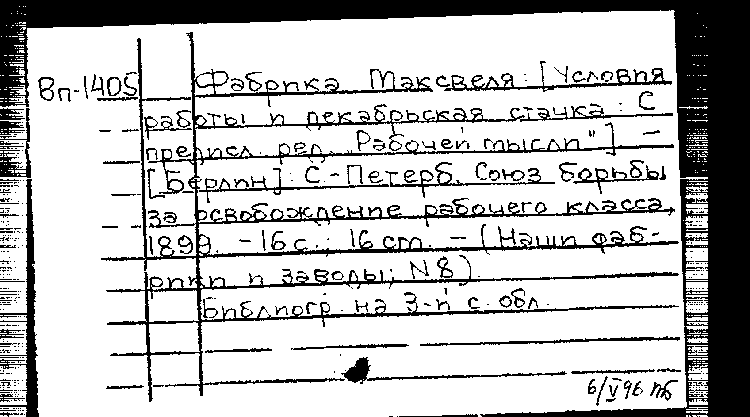 Вп-1405 Фабрика Максвеля: [Условия
работы и декабрьская стачка: С
предисл. ред. "Рабочей мысли"] —
[Берлин]: С-Петерб. Союз борьбы
за освобождение рабочего класса,
1899. - 16 с.; 16 ст. — (Наши фаб-
рики и заводы; N 8).
Библиогр. на 3-й с. обл.
6/V 96